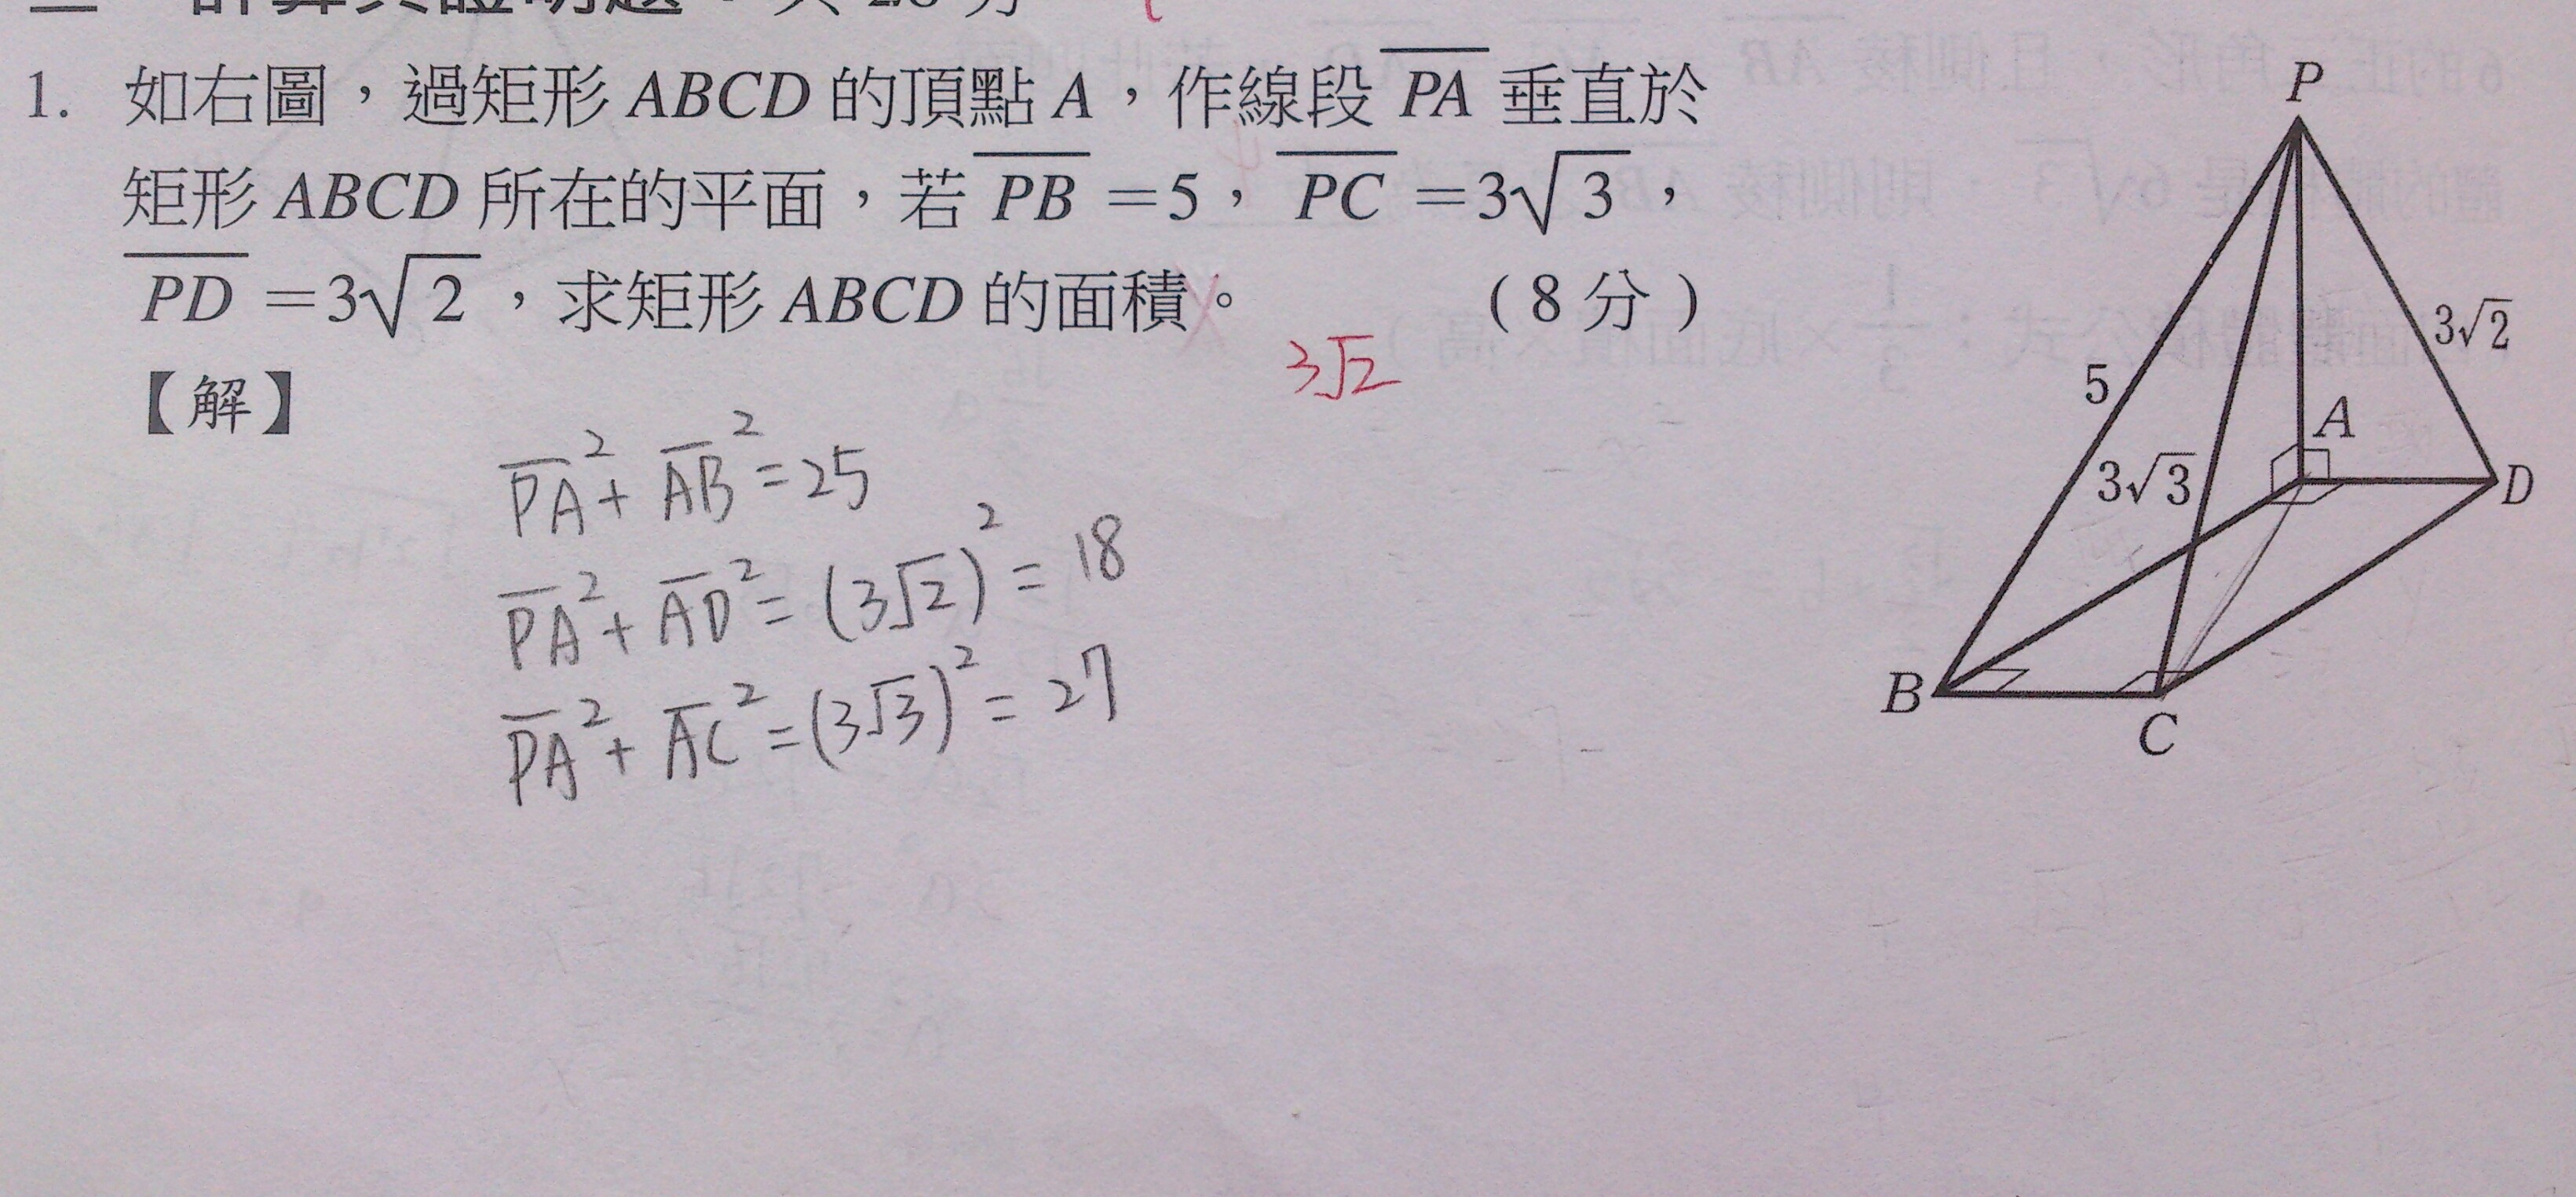 計算與證明題：共 28 分
1. 如右圖，過矩形 ABCD 的頂點 A，作線段 \overline{PA} 垂直於
矩形 ABCD 所在的平面，若 \overline{PB} =5，\overline{PC} =3√3，
\overline{PD} =3√2，求矩形 ABCD 的面積。 （8 分）
3√2
【解】
\overline{PA}²+\overline{AB}²=25
\overline{PA}²+\overline{AD}²=(3√2)²=18
\overline{PA}²+\overline{AC}²=(3√3)²=27
P
3√2
5
A
3√3
D
B
C